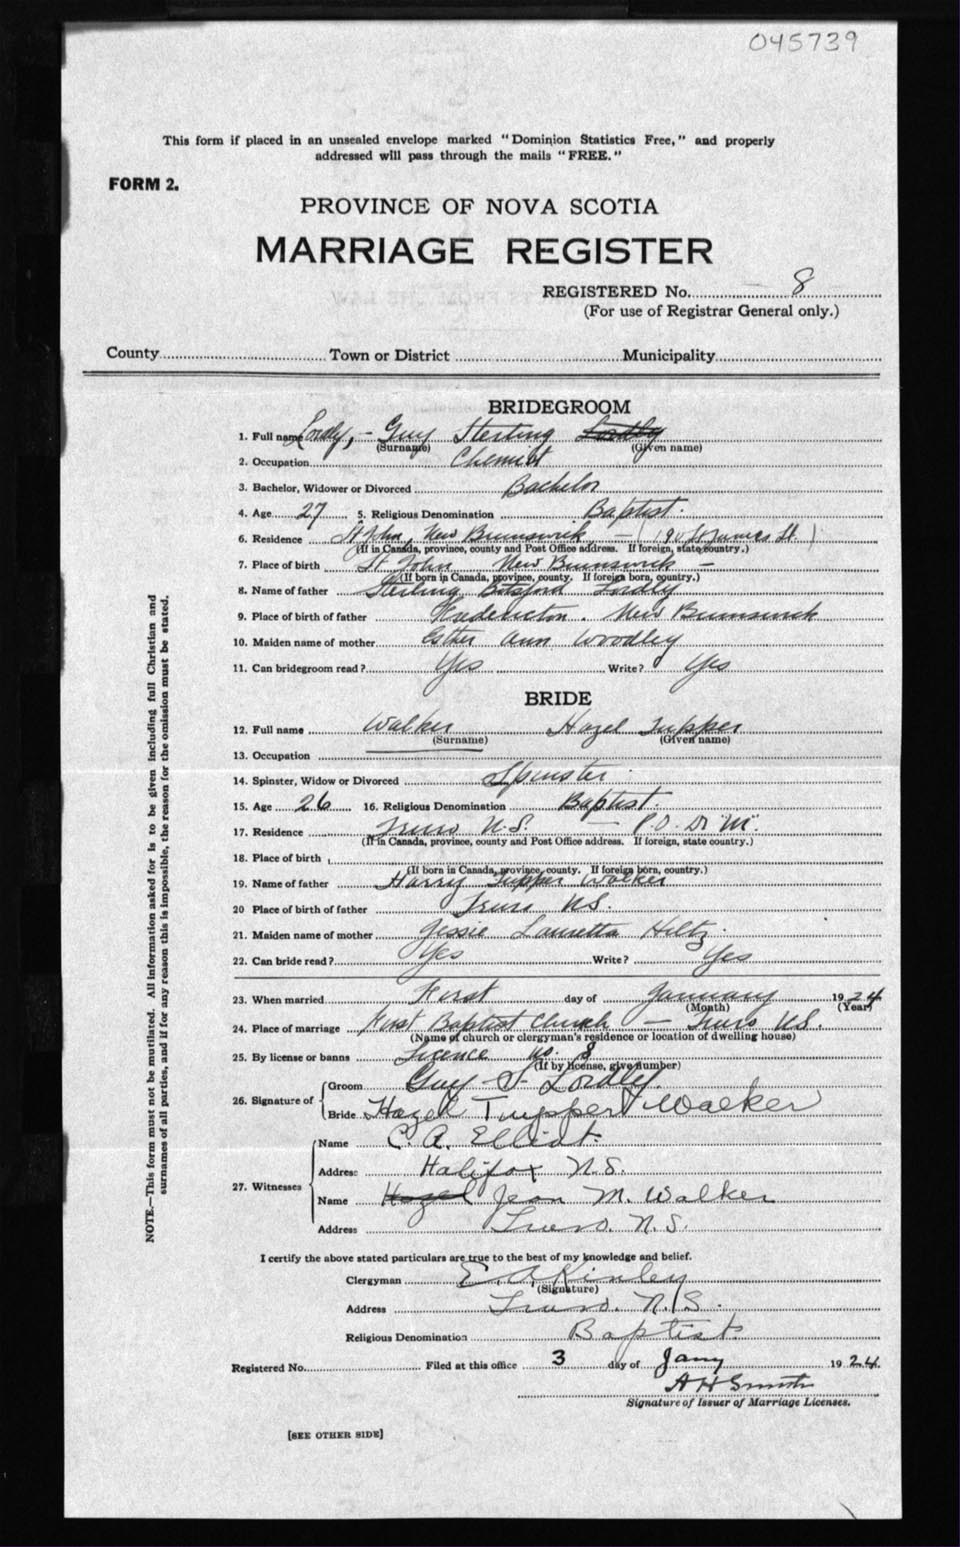 045739
This form if placed in an unsealed envelope marked "Dominion Statistics Free," and properly
addressed will pass through the mails "FREE."
FORM 2.
PROVINCE OF NOVA SCOTIA
MARRIAGE REGISTER
REGISTERED No. 8
(For use of Registrar General only.)
County Town or District Municipality
BRIDEGROOM
1. Full name Lordly, - Guy Sterling Lordly
(Surname) (Given name)
2. Occupation Chemist
3. Bachelor, Widower or Divorced Bachelor
4. Age 27 5. Religious Denomination Baptist.
6. Residence St John, New Brunswick - ( St James St. )
(If in Canada, province, county and Post Office address. If foreign, state country.)
7. Place of birth St. John New Brunswick -
(If born in Canada, province, county. If foreign born, country.)
8. Name of father Sterling Botsford Lordly
9. Place of birth of father Fredericton. New Brunswick
10. Maiden name of mother Esther Ann Woodley
11. Can bridegroom read? Yes Write? Yes
BRIDE
12. Full name Walker Hazel Tupper
(Surname) (Given name)
13. Occupation
14. Spinster, Widow or Divorced Spinster
15. Age 26 16. Religious Denomination Baptist.
17. Residence Truro N.S. - P.O. Dr "M".
(If in Canada, province, county and Post Office address. If foreign, state country.)
18. Place of birth
(If born in Canada, province, county. If foreign born, country.)
19. Name of father Harry Tupper Walker
20 Place of birth of father Truro N.S.
21. Maiden name of mother Jessie Lauretta Hiltz.
22. Can bride read? Yes Write? Yes
23. When married First day of January 1924
(Month) (Year)
24. Place of marriage First Baptist Church - Truro N.S.
(Name of church or clergyman's residence or location of dwelling house)
25. By license or banns Licence no. 8
(If by license, give number)
26. Signature of Groom Guy S. Lordly.
Bride Hazel Tupper Walker
27. Witnesses Name C. A. Elliot.
Address Halifax N.S.
Name Hazel Jean M. Walker
Address Truro. N.S.
I certify the above stated particulars are true to the best of my knowledge and belief.
Clergyman E. A Kinley
(Signature)
Address Truro. N.S.
Religious Denomination Baptist.
Registered No. Filed at this office 3 day of Jany 1924.
A H Smith
Signature of Issuer of Marriage Licenses.
[SEE OTHER SIDE]
NOTE.—This form must not be mutilated. All information asked for is to be given including full Christian and
surnames of all parties, and if for any reason this is impossible, the reason for the omission must be stated.